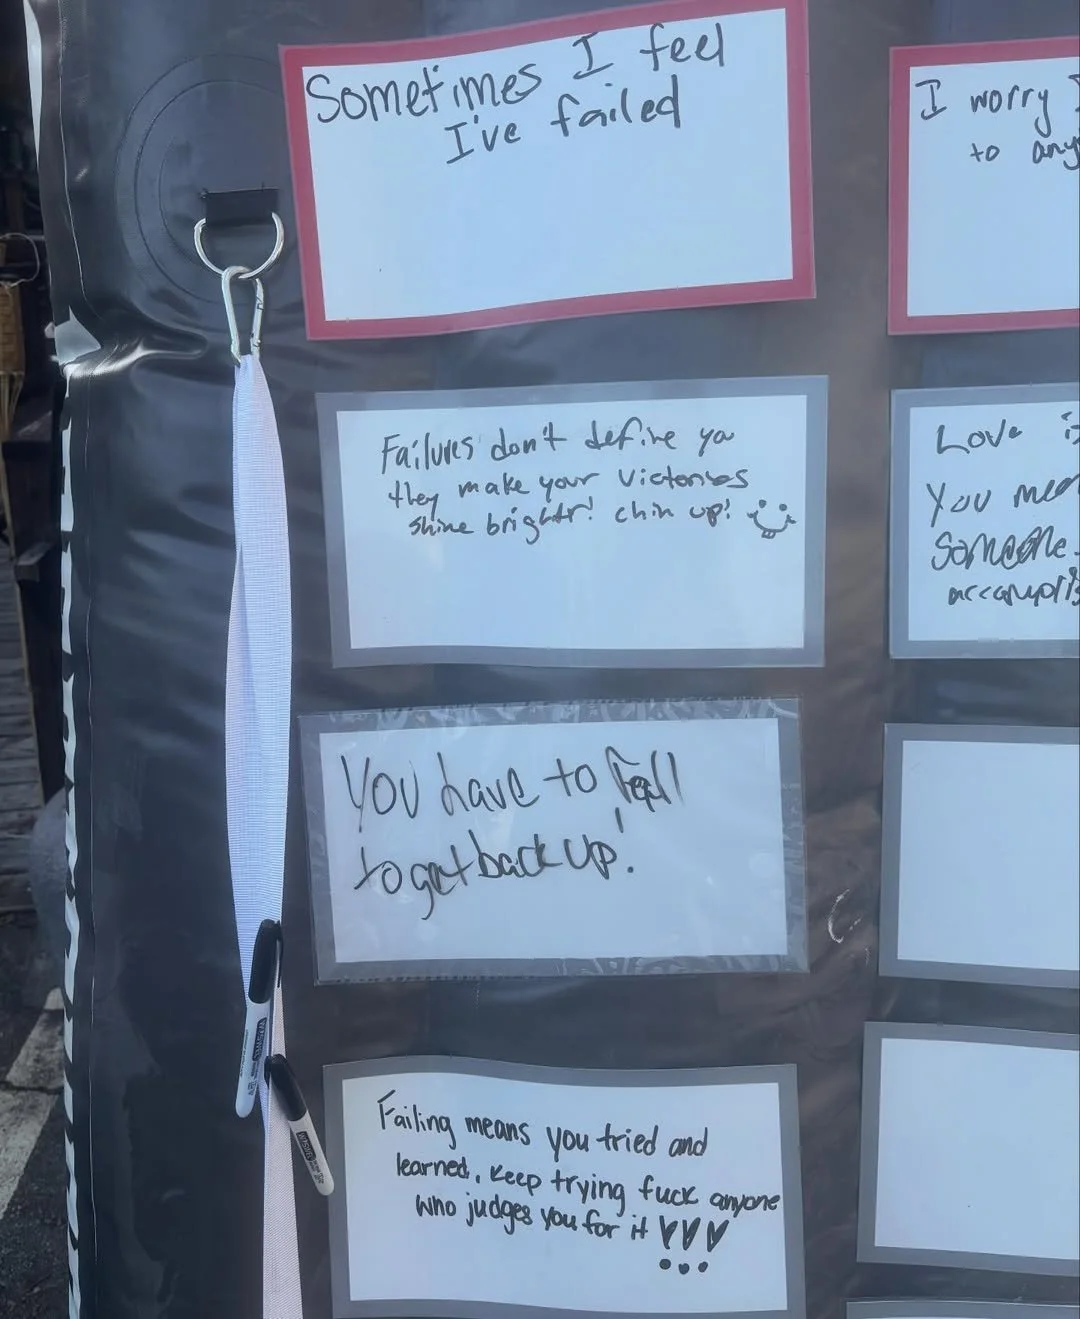 Sometimes I feel
I've failed
Failures don't define you
they make your victories
shine brighter! chin up!
You have to fall
to get back up!
Failing means you tried and
learned. Keep trying fuck anyone
who judges you for it !!!
I worry
to
Love
You
Someone